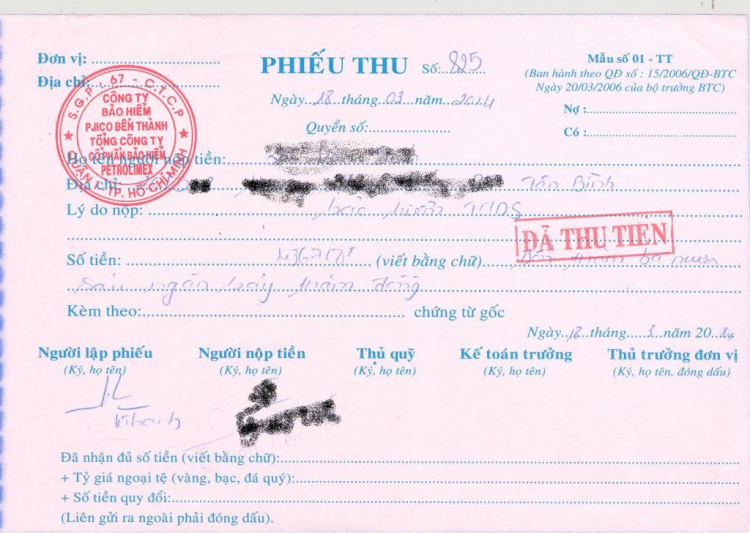 Đơn vị:
PHIẾU THU Số: 825
Mẫu số 01 - TT
(Ban hành theo QĐ số : 15/2006/QĐ-BTC
Ngày 20/03/2006 của bộ trưởng BTC)
Địa chỉ:
S.G.P: 67 - C.T.C.P
CÔNG TY
BẢO HIỂM
PJICO BẾN THÀNH
TỔNG CÔNG TY
CỔ PHẦN BẢO HIỂM
PETROLIMEX
QUẬN 1 - TP. HỒ CHÍ MINH
Ngày 18 tháng 03 năm 2014
Quyển số:
Nợ :
Có :
Họ tên người nộp tiền:
Địa chỉ: Tân Bình
Lý do nộp: bảo hiểm TNDS
ĐÃ THU TIỀN
Số tiền: (viết bằng chữ)
sáu ngàn bảy trăm đồng
Kèm theo: chứng từ gốc
Ngày 18 tháng 3 năm 2014
Người lập phiếu Người nộp tiền Thủ quỹ Kế toán trưởng Thủ trưởng đơn vị
(Ký, họ tên) (Ký, họ tên) (Ký, họ tên) (Ký, họ tên) (Ký, họ tên, đóng dấu)
Đã nhận đủ số tiền (viết bằng chữ):
+ Tỷ giá ngoại tệ (vàng, bạc, đá quý):
+ Số tiền quy đổi:
(Liên gửi ra ngoài phải đóng dấu).